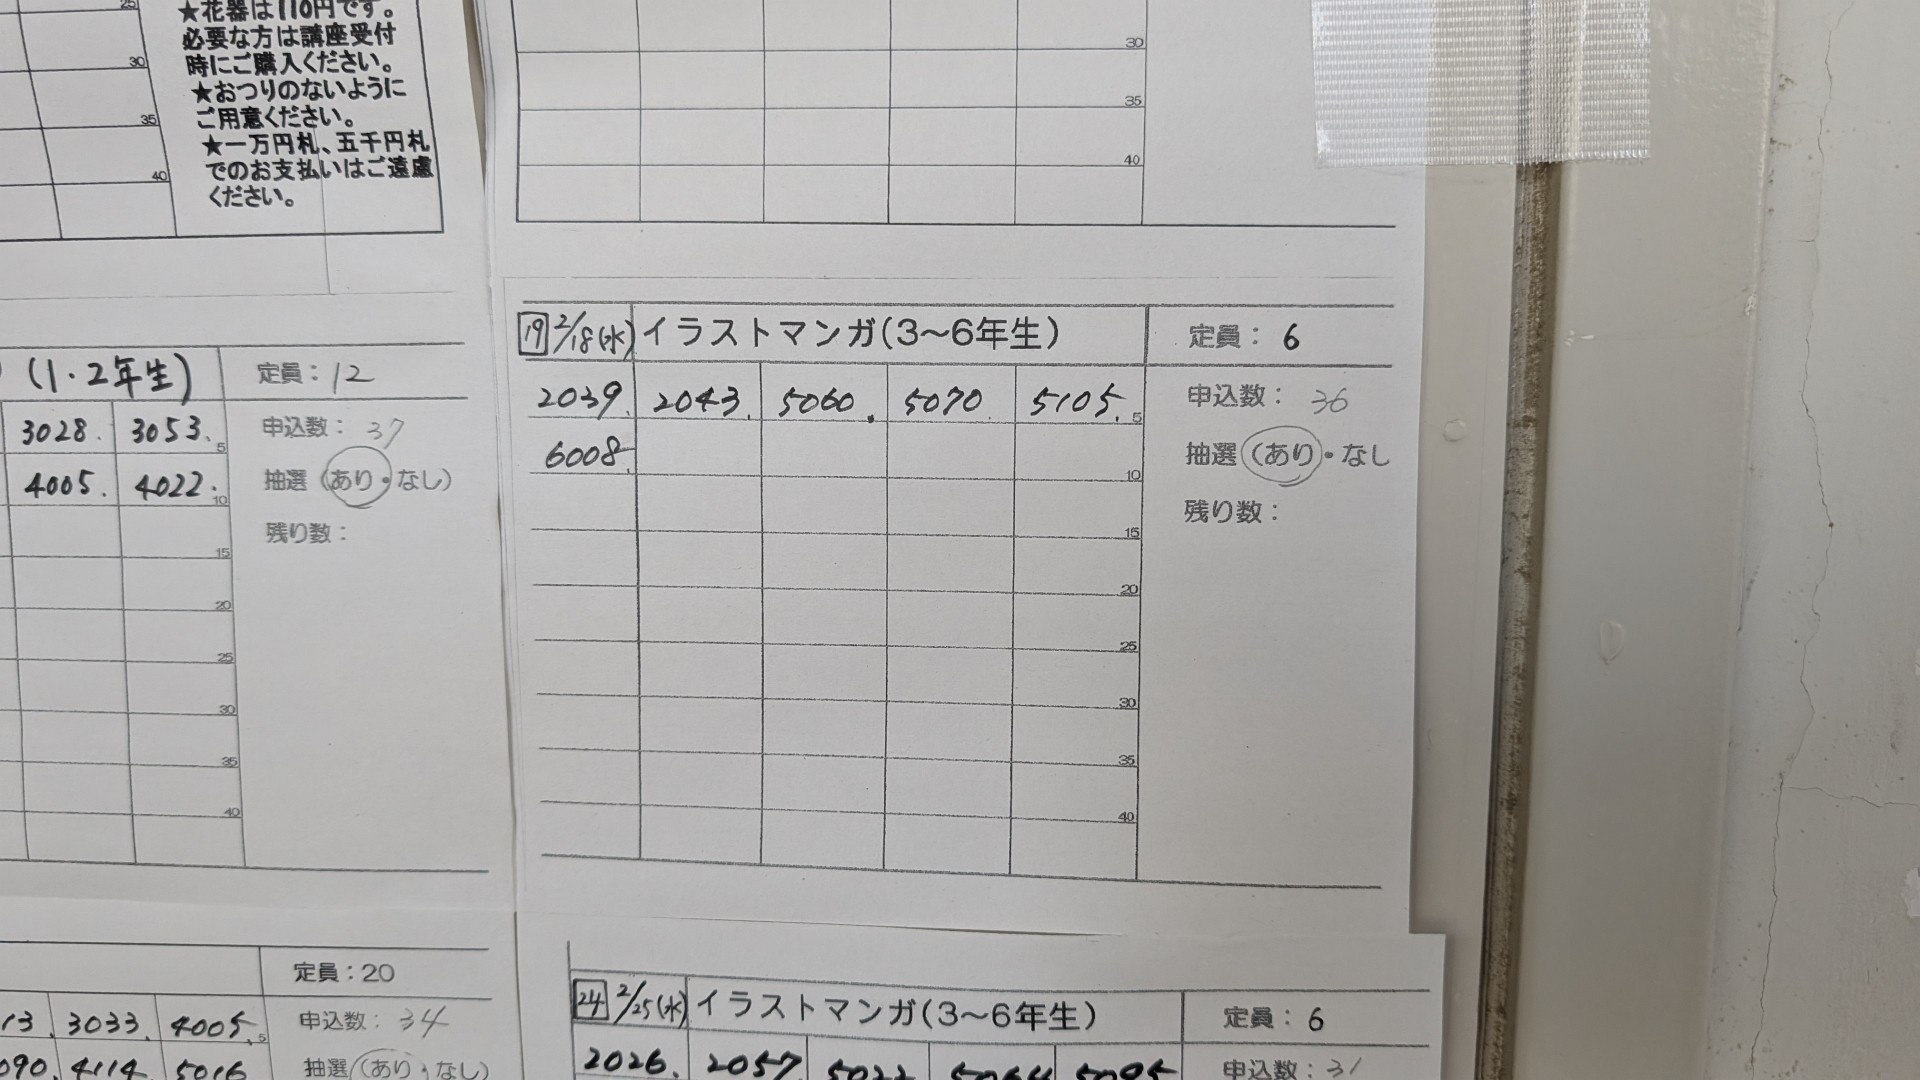 25
★花器は110円です。
必要な方は講座受付
時にご購入ください。
★おつりのないように
ご用意ください。
★一万円札、五千円札
でのお支払いはご遠慮
ください。
30
35
40
30
35
40
(1・2年生) 定員：12
3028. 3053. 5 申込数：37
4005. 4022. 10 抽選（あり・なし）
残り数：
15
20
25
30
35
40
19 2/18(水) イラストマンガ(3〜6年生) 定員：6
2039. 2043. 5060. 5070. 5105. 5 申込数：36
6008. 10 抽選（あり・なし
残り数：
15
20
25
30
35
40
定員：20
13. 3033. 4005. 5 申込数：34
090. 4114. 5016 抽選（あり・なし）
24 2/25(水) イラストマンガ(3〜6年生) 定員：6
2026. 2057. 5095 申込数：31